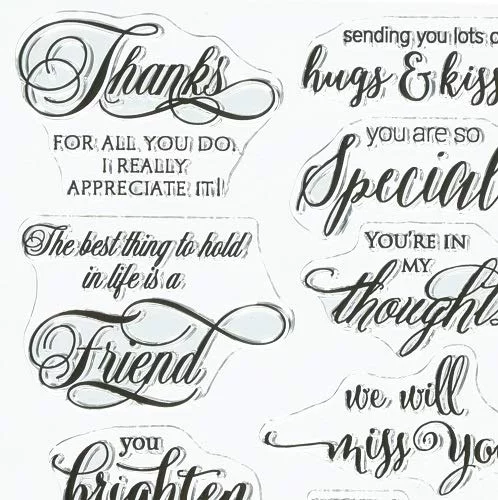 Thanks
FOR ALL YOU DO.
I REALLY
APPRECIATE IT!
The best thing to hold
in life is a
Friend
you
brighten
sending you lots o
hugs & kiss
you are so
Special
YOU'RE IN
MY
thoughts
we will
miss you